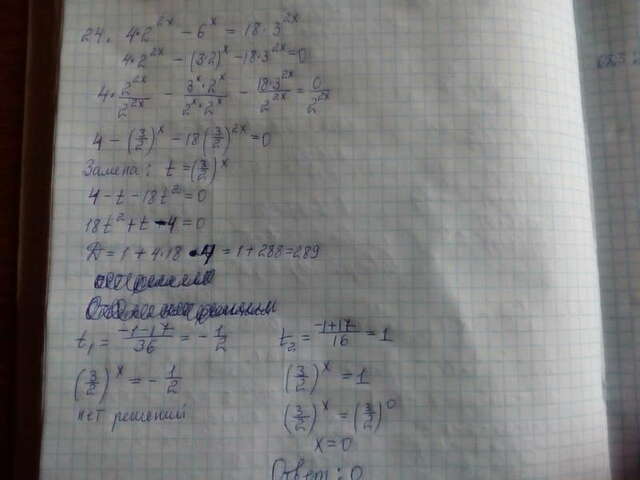 24. 4·2^{2x} - 6^x = 18·3^{2x}
4·2^{2x} - (3·2)^x - 18·3^{2x} = 0
4·\frac{2^{2x}}{2^{2x}} - \frac{3^x·2^x}{2^x·2^x} - \frac{18·3^{2x}}{2^{2x}} = \frac{0}{2^{2x}}
4 - (\frac{3}{2})^x - 18(\frac{3}{2})^{2x} = 0
Замена: t = (\frac{3}{2})^x
4 - t - 18t^2 = 0
18t^2 + t - 4 = 0
D = 1 + 4·18·4 = 1 + 288 = 289
t_1 = \frac{-1-17}{36} = -\frac{1}{2}
(\frac{3}{2})^x = -\frac{1}{2}
нет решений
t_2 = \frac{-1+17}{16} = 1
(\frac{3}{2})^x = 1
(\frac{3}{2})^x = (\frac{3}{2})^0
x = 0
Ответ: 0